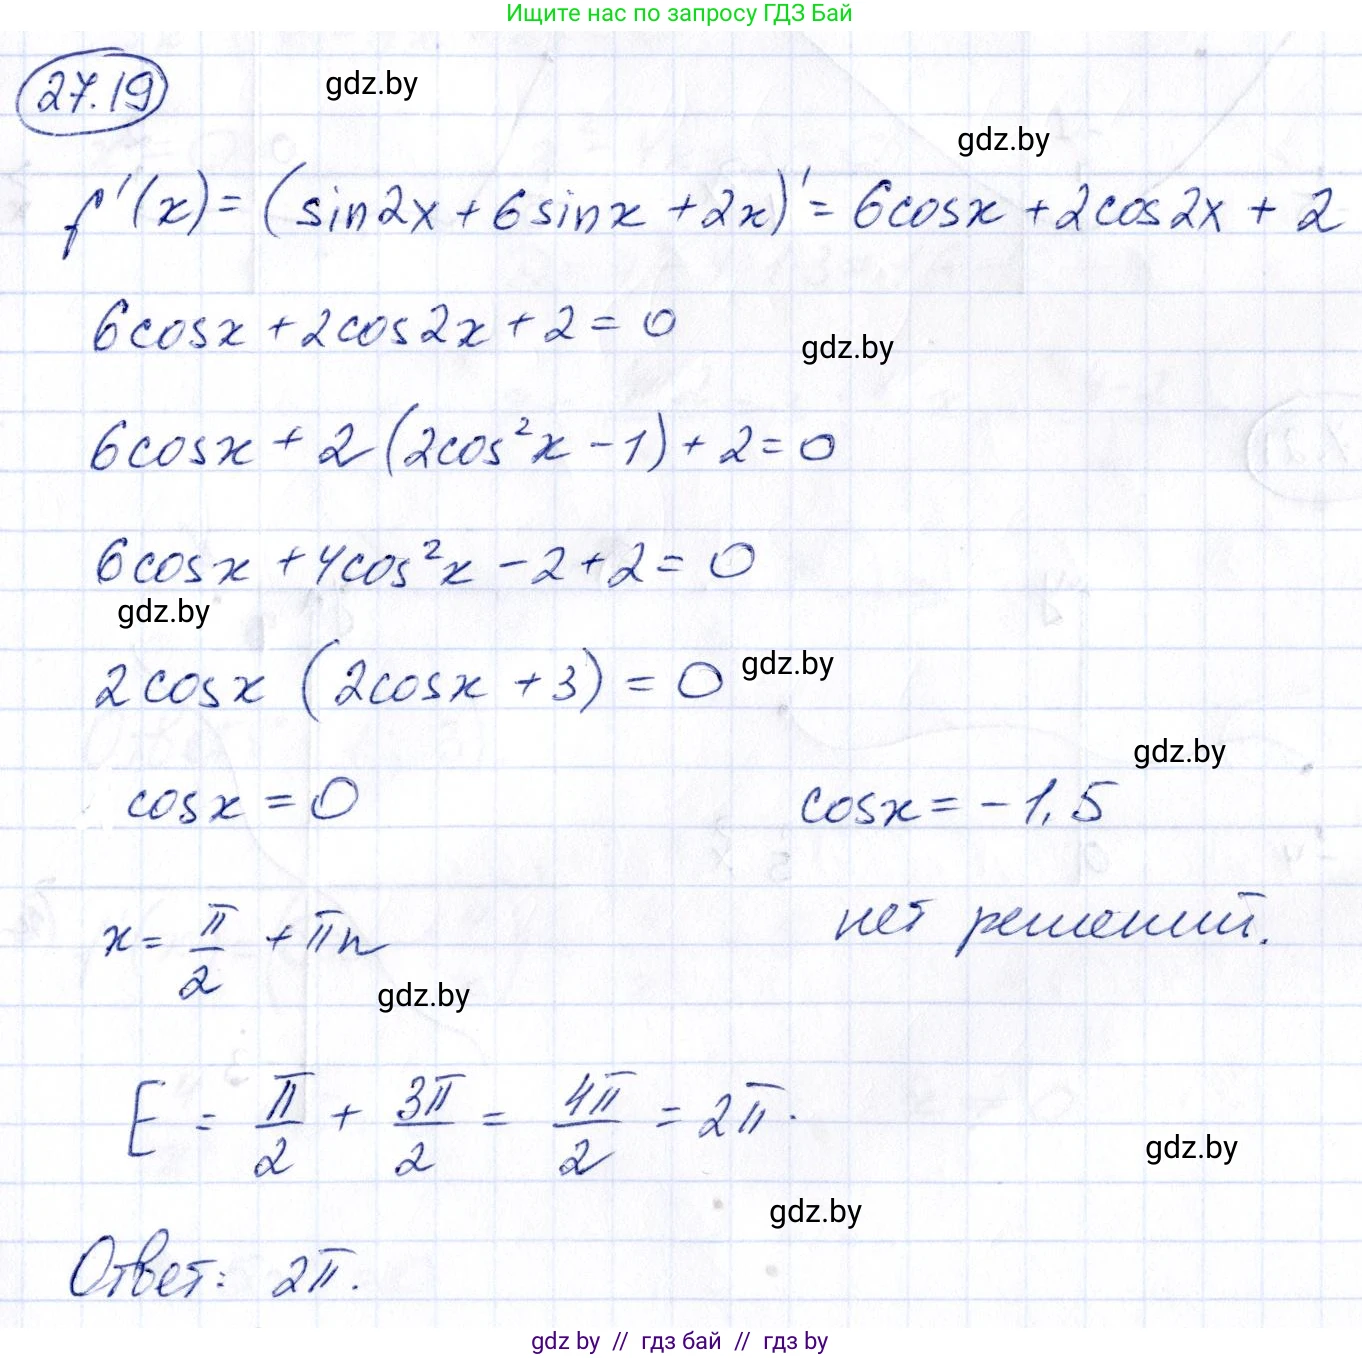 Ищите нас по запросу ГДЗ Бай
27.19
gdz.by
gdz.by
f'(x) = (sin2x + 6sinx + 2x)' = 6cosx + 2cos2x + 2
6cosx + 2cos2x + 2 = 0
gdz.by
6cosx + 2(2cos²x - 1) + 2 = 0
6cosx + 4cos²x - 2 + 2 = 0
gdz.by
2cosx (2cosx + 3) = 0
gdz.by
gdz.by
cosx = 0 cosx = -1,5
x = π/2 + πn нет решений.
gdz.by
E = π/2 + 3π/2 = 4π/2 = 2π.
gdz.by
gdz.by
Ответ: 2π.
gdz by // гдз бай // гдз by